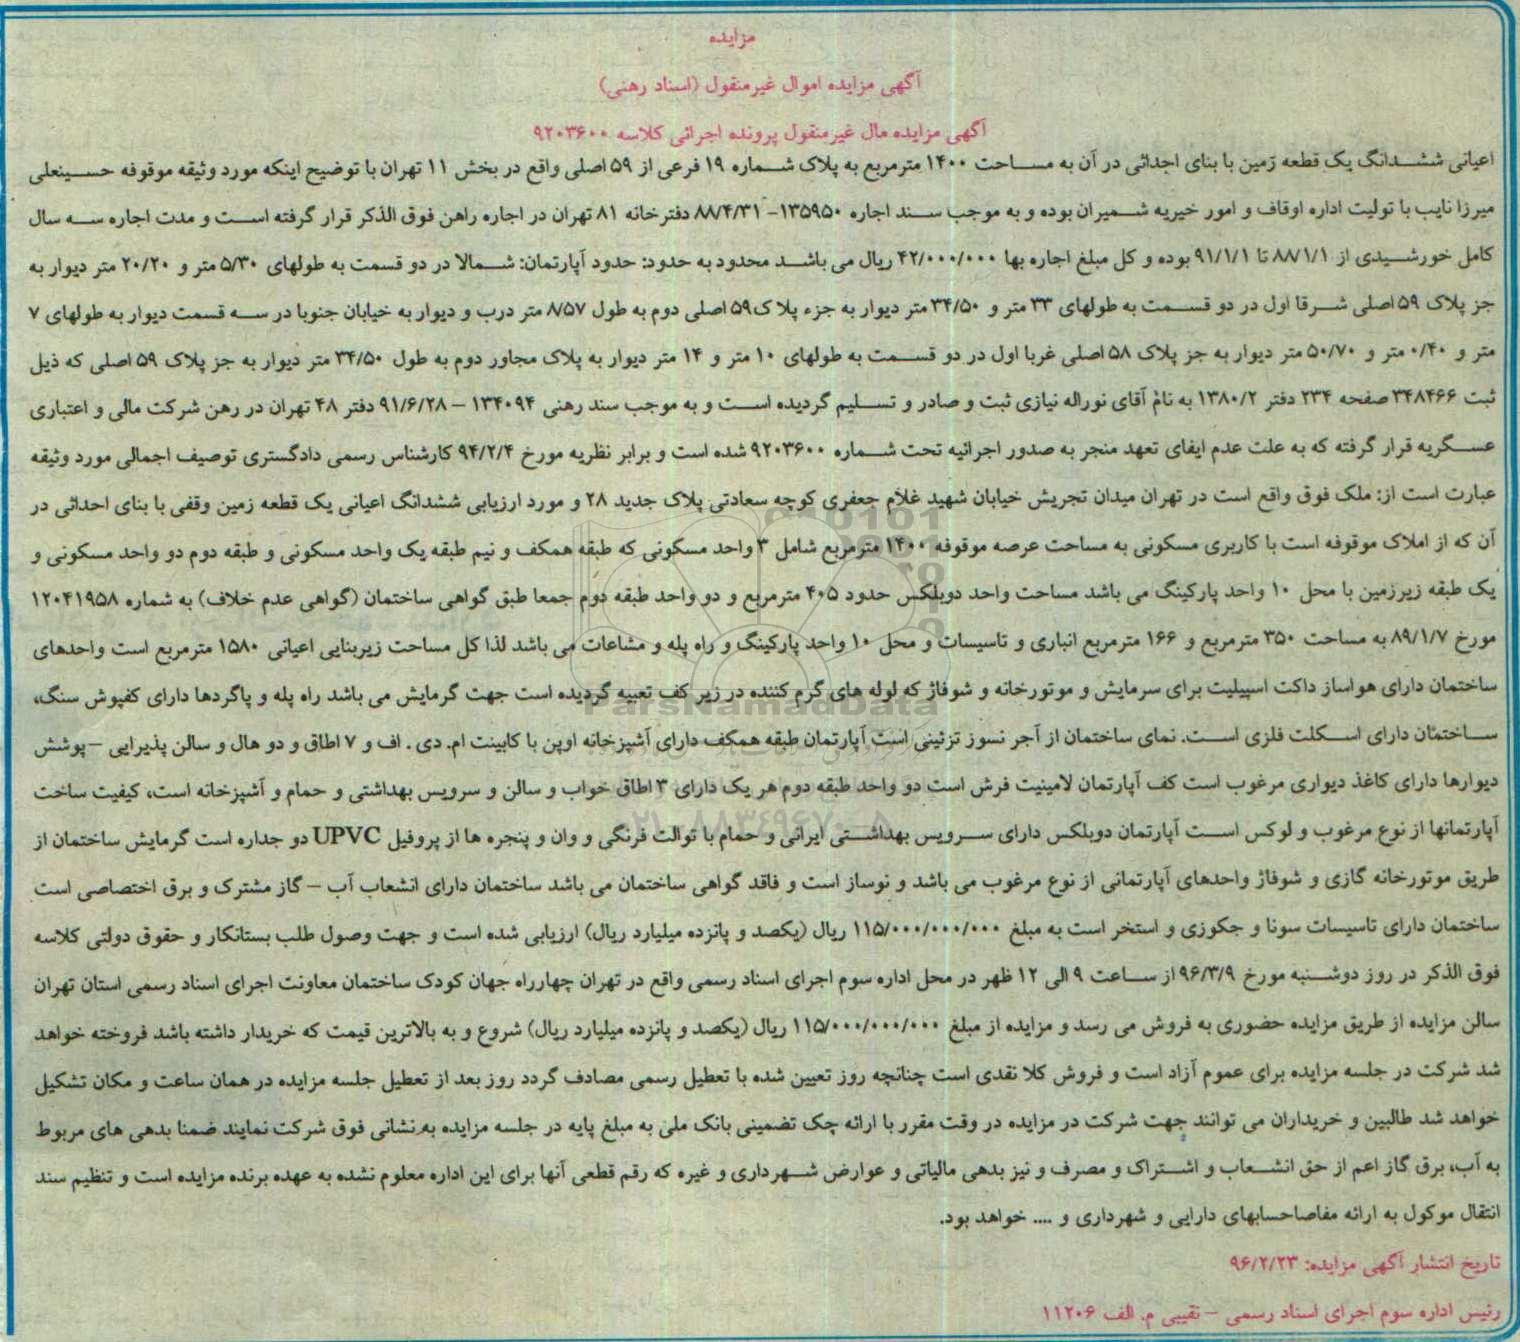 مزایده
آگهی مزایده اموال غیرمنقول (اسناد رهنی)
آگهی مزایده مال غیرمنقول پرونده اجرائی کلاسه ۹۲۰۳۶۰۰
اعیانی ششدانگ یک قطعه زمین با بنای احداثی در آن به مساحت ۱۴۰۰ مترمربع به پلاک شماره ۱۹ فرعی از ۵۹ اصلی واقع در بخش ۱۱ تهران با توضیح اینکه مورد وثیقه موقوفه حسینعلی
میرزا نایب با تولیت اداره اوقاف و امور خیریه شمیران بوده و به موجب سند اجاره ۱۳۵۹۵۰- ۸۸/۴/۳۱ دفترخانه ۸۱ تهران در اجاره راهن فوق الذکر قرار گرفته است و مدت اجاره سه سال
کامل خورشیدی از ۸۸/۱/۱ تا ۹۱/۱/۱ بوده و کل مبلغ اجاره بها ۴۲/۰۰۰/۰۰۰ ریال می باشد محدود به حدود: حدود آپارتمان: شمالا در دو قسمت به طولهای ۵/۳۰ متر و ۲۰/۲۰ متر دیوار به
جز پلاک ۵۹ اصلی شرقا اول در دو قسمت به طولهای ۳۳ متر و ۳۴/۵۰ متر دیوار به جزء پلاک ۵۹ اصلی دوم به طول ۸/۵۷ متر درب و دیوار به خیابان جنوبا در سه قسمت دیوار به طولهای ۷
متر و ۰/۴۰ متر و ۵۰/۷۰ متر دیوار به جز پلاک ۵۸ اصلی غربا اول در دو قسمت به طولهای ۱۰ متر و ۱۴ متر دیوار به پلاک مجاور دوم به طول ۳۴/۵۰ متر دیوار به جز پلاک ۵۹ اصلی که ذیل
ثبت ۳۴۸۴۶۶ صفحه ۲۳۴ دفتر ۱۳۸۰/۲ به نام آقای نوراله نیازی ثبت و صادر و تسلیم گردیده است و به موجب سند رهنی ۱۳۴۰۹۴ – ۹۱/۶/۲۸ دفتر ۴۸ تهران در رهن شرکت مالی و اعتباری
عسگریه قرار گرفته که به علت عدم ایفای تعهد منجر به صدور اجرائیه تحت شماره ۹۲۰۳۶۰۰ شده است و برابر نظریه مورخ ۹۴/۲/۴ کارشناس رسمی دادگستری توصیف اجمالی مورد وثیقه
عبارت است از: ملک فوق واقع است در تهران میدان تجریش خیابان شهید غلام جعفری کوچه سعادتی پلاک جدید ۲۸ و مورد ارزیابی ششدانگ اعیانی یک قطعه زمین وقفی با بنای احداثی در
آن که از املاک موقوفه است با کاربری مسکونی به مساحت عرصه موقوفه ۱۴۰۰ مترمربع شامل ۳ واحد مسکونی که طبقه همکف و نیم طبقه یک واحد مسکونی و طبقه دوم دو واحد مسکونی و
یک طبقه زیرزمین با محل ۱۰ واحد پارکینگ می باشد مساحت واحد دوبلکس حدود ۴۰۵ مترمربع و دو واحد طبقه دوم جمعا طبق گواهی ساختمان (گواهی عدم خلاف) به شماره ۱۲۰۴۱۹۵۸
مورخ ۸۹/۱/۷ به مساحت ۳۵۰ مترمربع و ۱۶۶ مترمربع انباری و تاسیسات و محل ۱۰ واحد پارکینگ و راه پله و مشاعات می باشد لذا کل مساحت زیربنایی اعیانی ۱۵۸۰ مترمربع است واحدهای
ساختمان دارای هواساز داکت اسپیلیت برای سرمایش و موتورخانه و شوفاژ که لوله های گرم کننده در زیر کف تعبیه گردیده است جهت گرمایش می باشد راه پله و پاگردها دارای کفپوش سنگ،
ساختمان دارای اسکلت فلزی است. نمای ساختمان از آجر نسوز تزئینی است آپارتمان طبقه همکف دارای آشپزخانه اوپن با کابینت ام. دی . اف و ۷ اطاق و دو هال و سالن پذیرایی –پوشش
دیوارها دارای کاغذ دیواری مرغوب است کف آپارتمان لامینیت فرش است دو واحد طبقه دوم هر یک دارای ۳ اطاق خواب و سالن و سرویس بهداشتی و حمام و آشپزخانه است، کیفیت ساخت
آپارتمانها از نوع مرغوب و لوکس است آپارتمان دوبلکس دارای سرویس بهداشتی ایرانی و حمام با توالت فرنگی و وان و پنجره ها از پروفیل UPVC دو جداره است گرمایش ساختمان از
طریق موتورخانه گازی و شوفاژ واحدهای آپارتمانی از نوع مرغوب می باشد و نوساز است و فاقد گواهی ساختمان می باشد ساختمان دارای انشعاب آب – گاز مشترک و برق اختصاصی است
ساختمان دارای تاسیسات سونا و جکوزی و استخر است به مبلغ ۱۱۵/۰۰۰/۰۰۰/۰۰۰ ریال (یکصد و پانزده میلیارد ریال) ارزیابی شده است و جهت وصول طلب بستانکار و حقوق دولتی کلاسه
فوق الذکر در روز دوشنبه مورخ ۹۶/۳/۹ از ساعت ۹ الی ۱۲ ظهر در محل اداره سوم اجرای اسناد رسمی واقع در تهران چهارراه جهان کودک ساختمان معاونت اجرای اسناد رسمی استان تهران
سالن مزایده از طریق مزایده حضوری به فروش می رسد و مزایده از مبلغ ۱۱۵/۰۰۰/۰۰۰/۰۰۰ ریال (یکصد و پانزده میلیارد ریال) شروع و به بالاترین قیمت که خریدار داشته باشد فروخته خواهد
شد شرکت در جلسه مزایده برای عموم آزاد است و فروش کلا نقدی است چنانچه روز تعیین شده با تعطیل رسمی مصادف گردد روز بعد از تعطیل جلسه مزایده در همان ساعت و مکان تشکیل
خواهد شد طالبین و خریداران می توانند جهت شرکت در مزایده در وقت مقرر با ارائه چک تضمینی بانک ملی به مبلغ پایه در جلسه مزایده به نشانی فوق شرکت نمایند ضمنا بدهی های مربوط
به آب، برق گاز اعم از حق انشعاب و اشتراک و مصرف و نیز بدهی مالیاتی و عوارض شهرداری و غیره که رقم قطعی آنها برای این اداره معلوم نشده به عهده برنده مزایده است و تنظیم سند
انتقال موکول به ارائه مفاصاحسابهای دارایی و شهرداری و .... خواهد بود.
تاریخ انتشار آگهی مزایده: ۹۶/۲/۲۳
رئیس اداره سوم اجرای اسناد رسمی – نقیبی م. الف ۱۱۲۰۶
ParsNamadData
۰۲۱-۸۸۳۴۹۶۷۰-۵